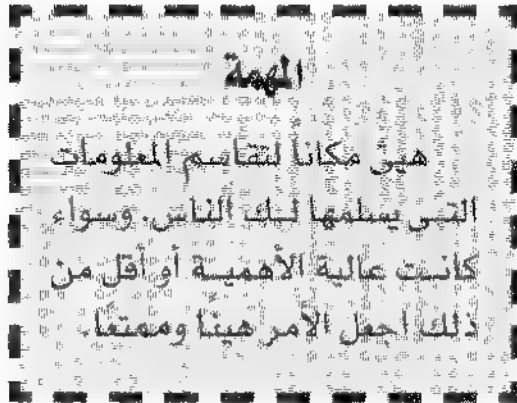 المهمة
هيئ مكاناً لتقاسم المعلومات
التي يسلمها لك الناس. وسواء
كانت عالية الأهمية أو أقل من
ذلك اجعل الأمر هيناً وممتعاً.